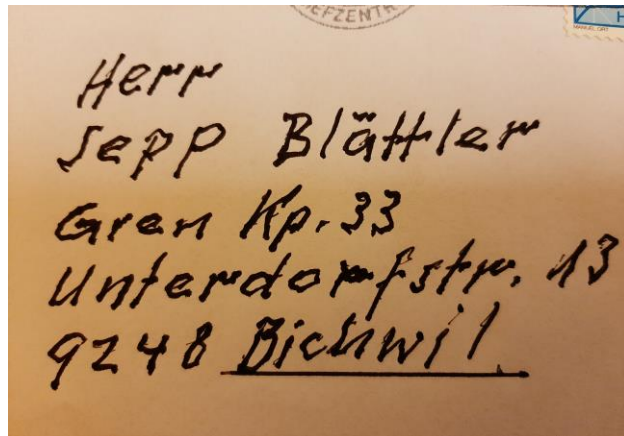 BRIEFZENTR
Herr
Sepp Blättler
Gren Kp. 33
Unterdorfstr. 13
9248 Bichwil